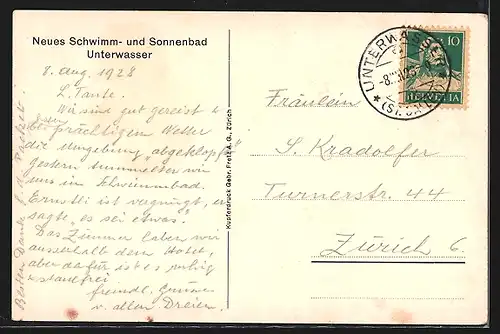 Neues Schwimm- und Sonnenbad
Unterwasser
8. Aug. 1928
L. Tante.
Wir sind gut gereist &
bei prächtigem Wetter
die Umgebung "abgeklopft"
gestern tummelten wir
uns im Schwimmbad.
Ernstli ist vergnügt, er
sagte "es sei etwas".
Das Zimmer haben wir
ausserhalb dem Hotel,
aber dafür ist es ruhig
& staubfrei
freundl. Grüsse
v. allen Dreien
Besten Dank f. d. Packet!
Kupferdruck Gebr. Fretz A. G., Zürich
UNTERWASSER
10
HELVETIA
Fräulein
S. Kradolfer
Turnerstr. 44
Zürich 6.